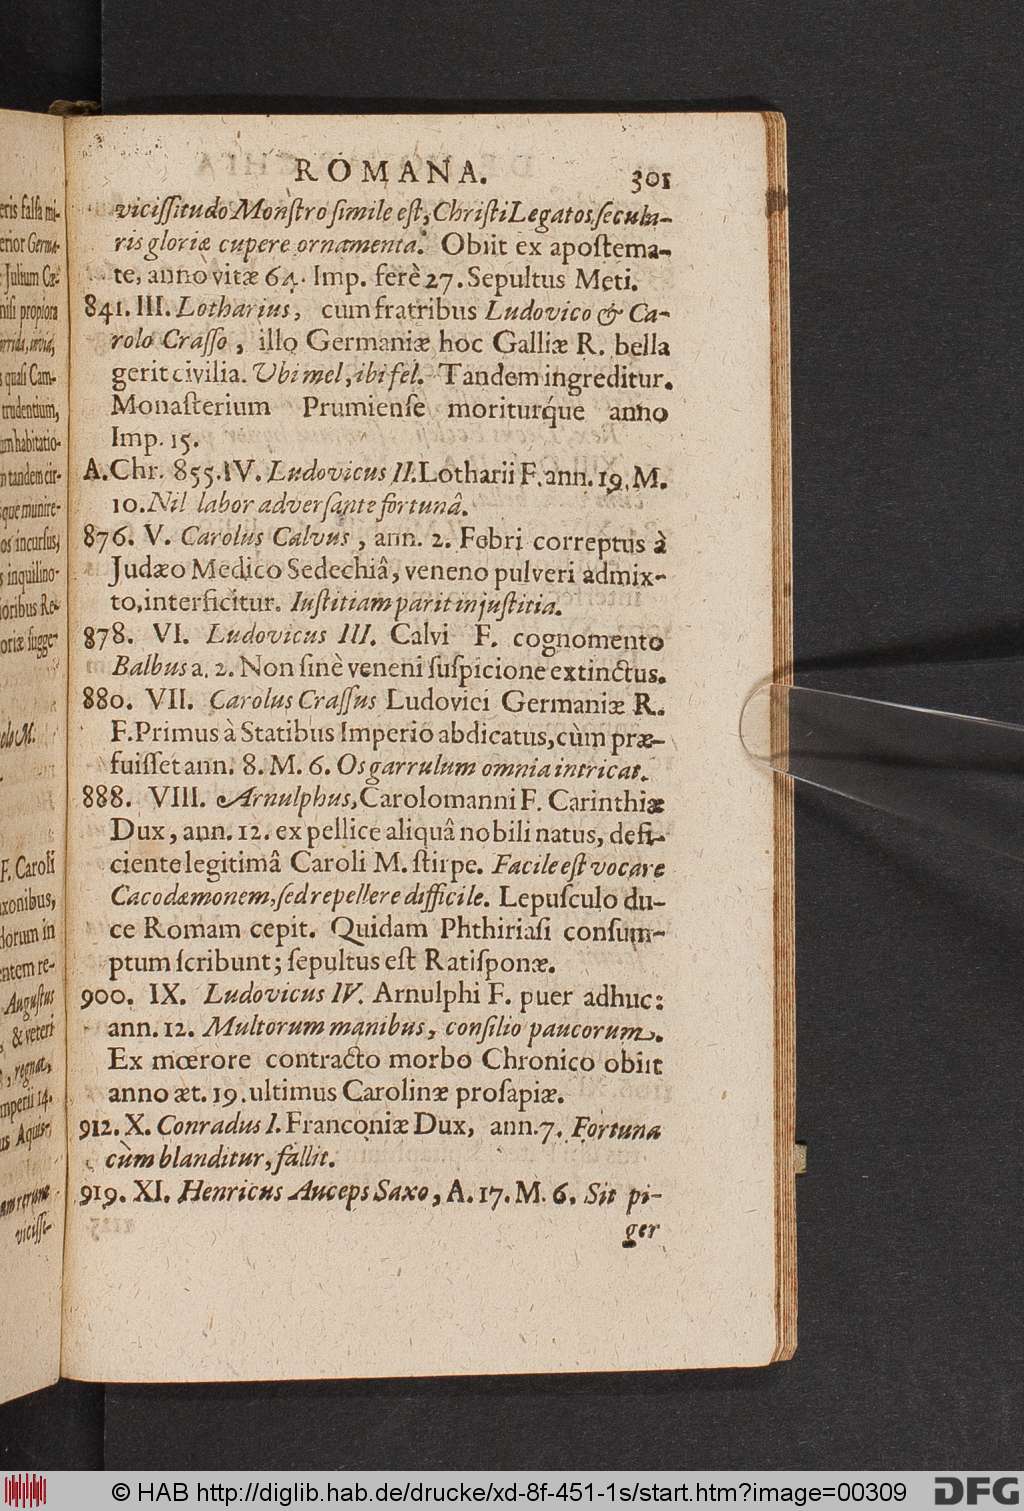 eris falsa mi-
erior Germa-
Julium Cæ-
nisi propiora
quasi Cam-
trudentium,
um habitatio-
n tandem cir-
que munire-
os incursus;
s inquilino-
ioribus Re-
oriæ sugge-
olo M.
F. Caroli
xonibus,
dorum in
entem re-
Augustus
, & veteri
, regnat,
mperii 14.
us Aquis-
vicissi-
ROMANA. 301
vicißitudo Monſtro ſimile eſt, Chriſti Legatos ſecula-
ris gloriæ cupere ornamenta. Obiit ex apoſtema-
te, anno vitæ 64. Imp. ferè 27. Sepultus Meti.
841. III. Lotharius, cum fratribus Ludovico & Ca-
rolo Craſſo, illo Germaniæ hoc Galliæ R. bella
gerit civilia. Ubi mel, ibi fel. Tandem ingreditur.
Monaſterium Prumienſe moriturq́ue anno
Imp. 15.
A. Chr. 855. IV. Ludovicus II. Lotharii F. ann. 19. M.
10. Nil labor adverſante fortunâ.
876. V. Carolus Calvus, ann. 2. Febri correptus à
Judæo Medico Sedechiâ, veneno pulveri admix-
to, interficitur. Iuſtitiam parit injuſtitia.
878. VI. Ludovicus III. Calvi F. cognomento
Balbus a. 2. Non ſinè veneni ſuſpicione extinctus.
880. VII. Carolus Craſſus Ludovici Germaniæ R.
F. Primus à Statibus Imperio abdicatus, cùm præ-
fuiſſet ann. 8. M. 6. Os garrulum omnia intricat.
888. VIII. Arnulphus, Carolomanni F. Carinthiæ
Dux, ann. 12. ex pellice aliquâ nobili natus, defi-
ciente legitimâ Caroli M. ſtirpe. Facile eſt vocare
Cacodæmonem, ſed repellere difficile. Lepuſculo du-
ce Romam cepit. Quidam Phthiriaſi conſum-
ptum ſcribunt; ſepultus eſt Ratiſponæ.
900. IX. Ludovicus IV. Arnulphi F. puer adhuc:
ann. 12. Multorum manibus, conſilio paucorum.
Ex mœrore contracto morbo Chronico obiit
anno æt. 19. ultimus Carolinæ proſapiæ.
912. X. Conradus I. Franconiæ Dux, ann. 7. Fortuna
cùm blanditur, fallit.
919. XI. Henricus Auceps Saxo, A. 17. M. 6. Sit pi-
ger
© HAB http://diglib.hab.de/drucke/xd-8f-451-1s/start.htm?image=00309
DFG